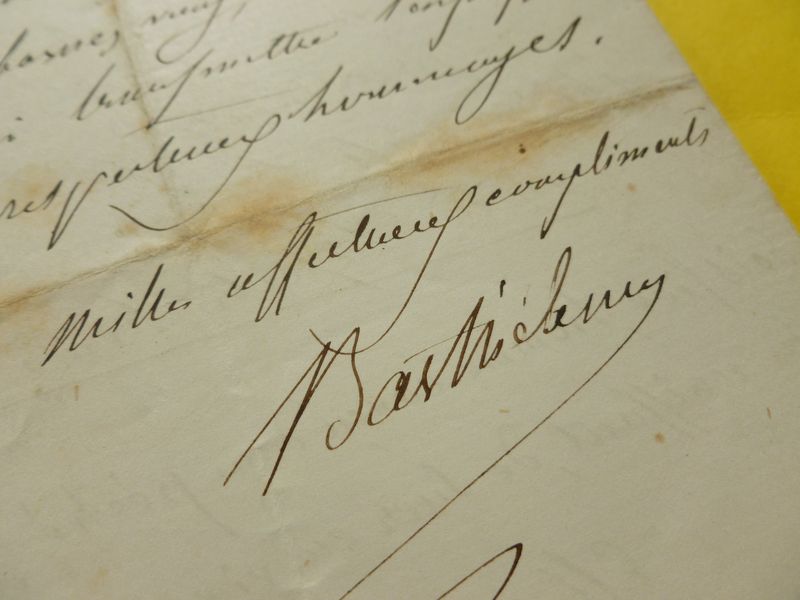 transmettre
respectueux hommages.
Mille affectueux compliments
Barthélemy